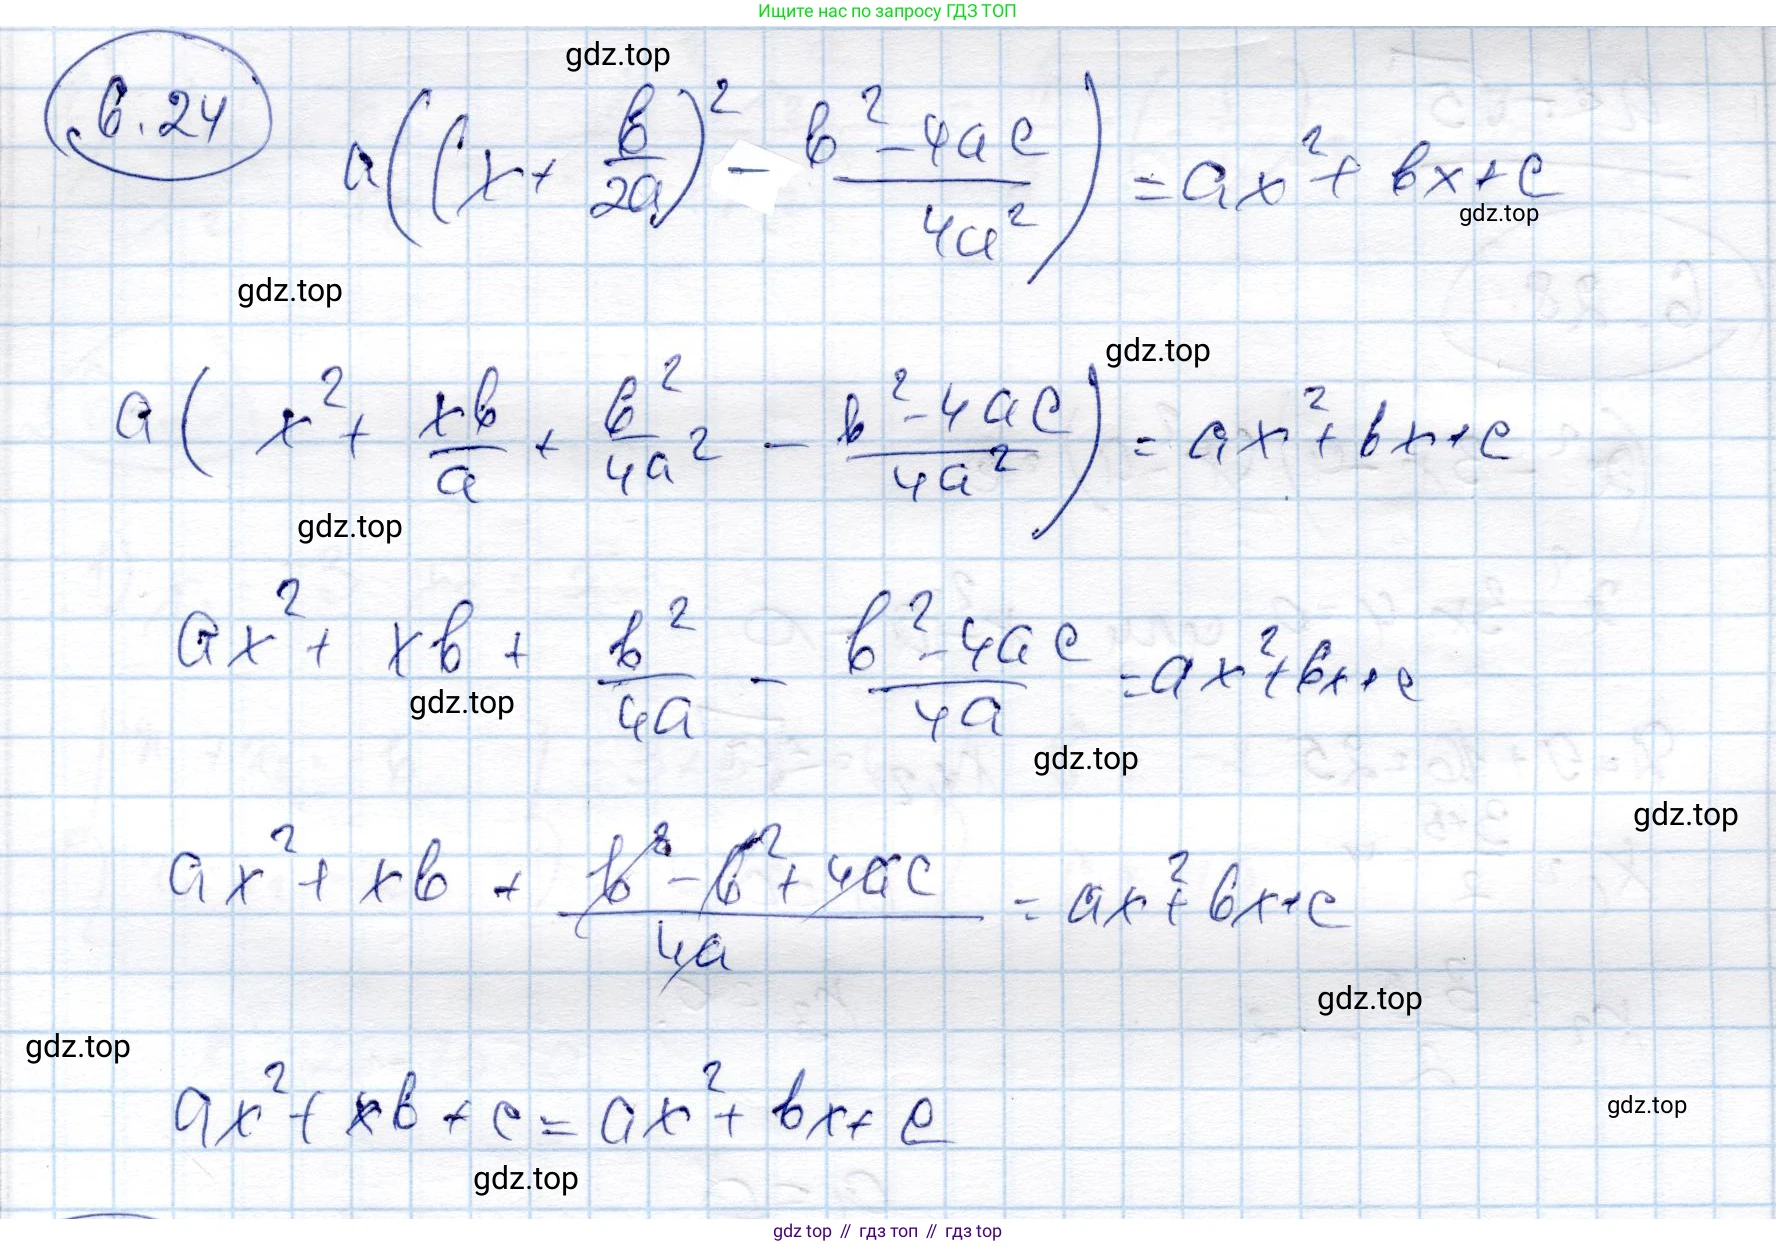 Ищите нас по запросу ГДЗ ТОП
gdz.top
6.24
a((x + b/2a)² − (b² − 4ac)/4a²) = ax² + bx + c
gdz.top
gdz.top
gdz.top
a(x² + xb/a + b²/4a² − (b² − 4ac)/4a²) = ax² + bx + c
gdz.top
ax² + xb + b²/4a − (b² − 4ac)/4a = ax² + bx + c
gdz.top
gdz.top
gdz.top
ax² + xb + (b² − b² + 4ac)/4a = ax² + bx + c
gdz.top
gdz.top
ax² + xb + c = ax² + bx + c
gdz.top
gdz.top
gdz top // гдз топ // гдз top